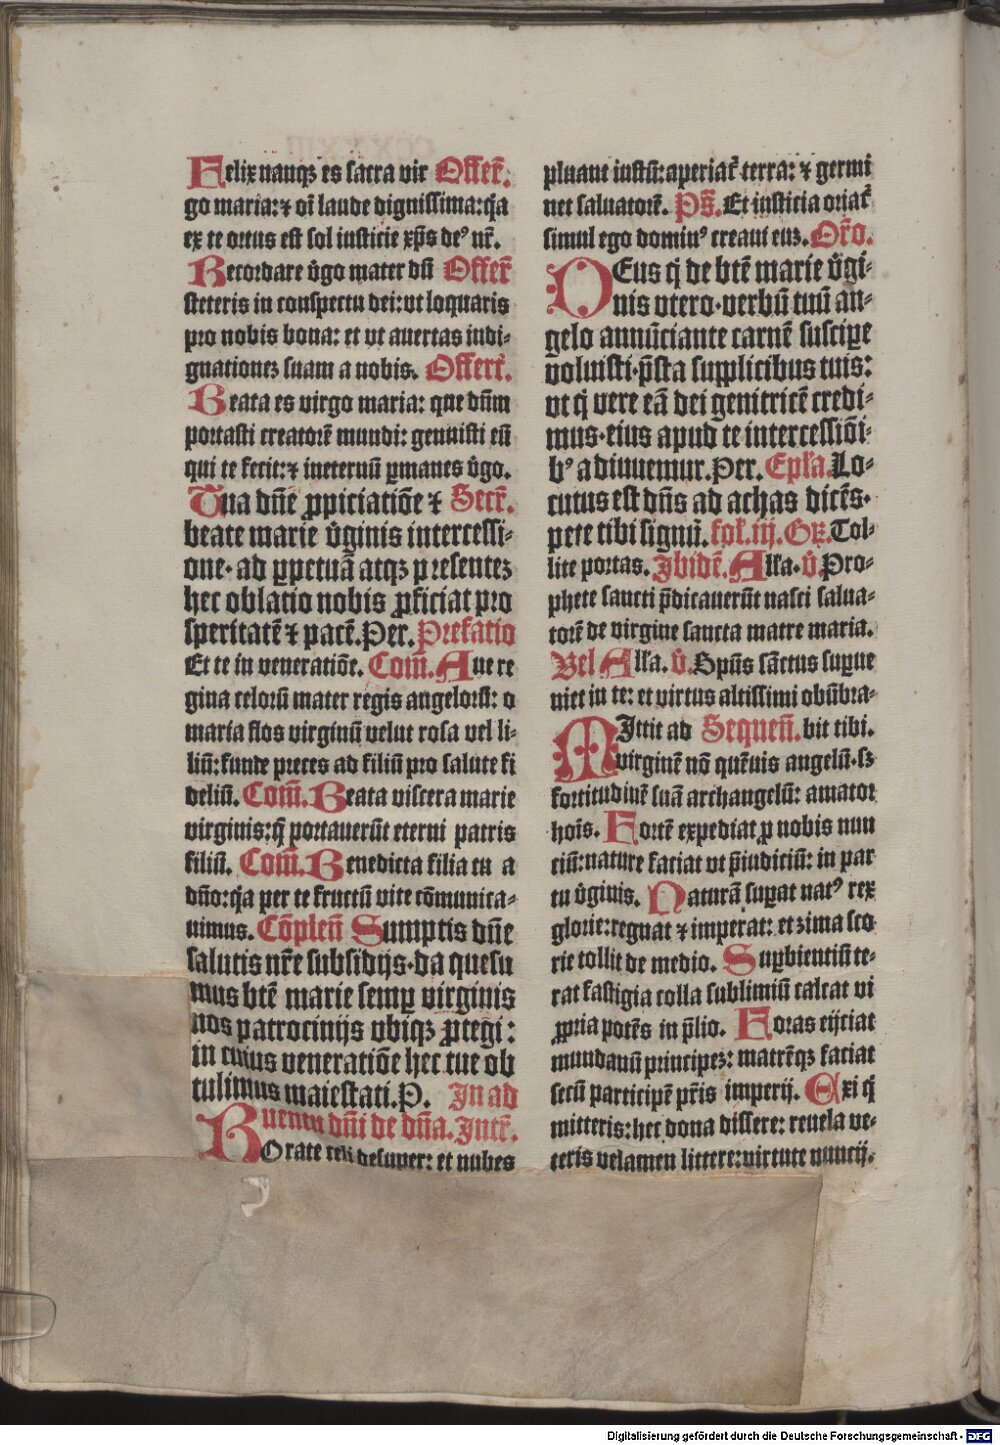 Felix nanqꝫ es sacra vir Offert̄.
go maria: ⁊ oī laude dignissima: q̄a
ex te ortus est sol iusticie xp̄s deꝰ nr̄.
Recordare v̄go mater dn̄i Offert̄
steteris in conspectu dei: vt loquaris
pro nobis bona: et vt auertas indi-
gnationeꝫ suam a nobis. Offert̄.
Beata es virgo maria: que dn̄m
portasti creatorē mundi: genuisti eū
qui te fecit: ⁊ ineternū ꝑmanes v̄go.
Tua dn̄e ꝓpiciatiōe ⁊ Secr̄.
beate marie v̄ginis intercessi-
one· ad ꝑpetuā atqꝫ presenteꝫ
hec oblatio nobis ꝓficiat pro
speritatē ⁊ pacē. Per. Prefatio
Et te in veneratiōe. Com̄. Aue re
gina celorū mater regis angelorū: o
maria flos virginū velut rosa vel li-
liū: funde preces ad filiū pro salute fi
deliū. Com̄. Beata viscera marie
virginis: q̄ portauerūt eterni patris
filiū. Com̄. Benedicta filia tu a
dn̄o: q̄a per te fructū vite cōmunica-
uimus. Cōplen̄ Sumptis dn̄e
salutis nr̄e subsidijs· da quesu
mus btē marie semꝑ virginis
nos patrocinijs vbiqꝫ ꝓtegi:
in cuius veneratiōe hec tue ob
tulimus maiestati. P. In ad
uentu dn̄i de dn̄a. Intr̄.
Rorate celi desuper: et nubes
pluant iustū: aperiat᷑ terra: ⁊ germi
net saluatorē. Ps̄. Et iusticia oriat᷑
simul ego dominꝰ creaui euꝫ. Or̄o.
DEus q̄ de btē marie v̄gi-
nis vtero· verbū tuū an-
gelo annūciante carnē suscipe
voluisti· p̄sta supplicibus tuis:
vt q̄ vere eā dei genitricē credi-
mus· eius apud te intercessiōi-
bꝰ adiuuemur. Per. Epl̄a. Lo-
cutus est dn̄s ad achas dicēs·
pete tibi signū. fol. iij. Gr̄. Tol-
lite portas. Ibidē. All'a. v̄. Pro-
phete sancti p̄dicauerūt nasci salua-
torē de virgine sancta matre maria.
Vel All'a. v̄. Spūs sāctus suꝑue
niet in te: et virtus altissimi obūbra-
MIttit ad Sequen̄. bit tibi.
virginē nō quēuis angelū· sꝫ
fortitudinē suā archangelū: amator
hoīs. Fortē expediat ꝓ nobis nun
ciū: nature faciat vt p̄iudiciū: in par
tu v̄ginis. Naturā suꝑat natꝰ rex
glorie: regnat ⁊ imperat: et zima sco
rie tollit de medio. Suꝑbientiū te-
rat fastigia colla sublimiū calcat vi
ꝓpria potēs in p̄lio. Foras eijciat
mundanū principeꝫ: matrēqꝫ faciat
secū participē pr̄is imperij. Exi q̄
mitteris: hec dona dissere: reuela ve-
teris velamen littere: virtute nuncij.
Digitalisierung gefördert durch die Deutsche Forschungsgemeinschaft - DFG